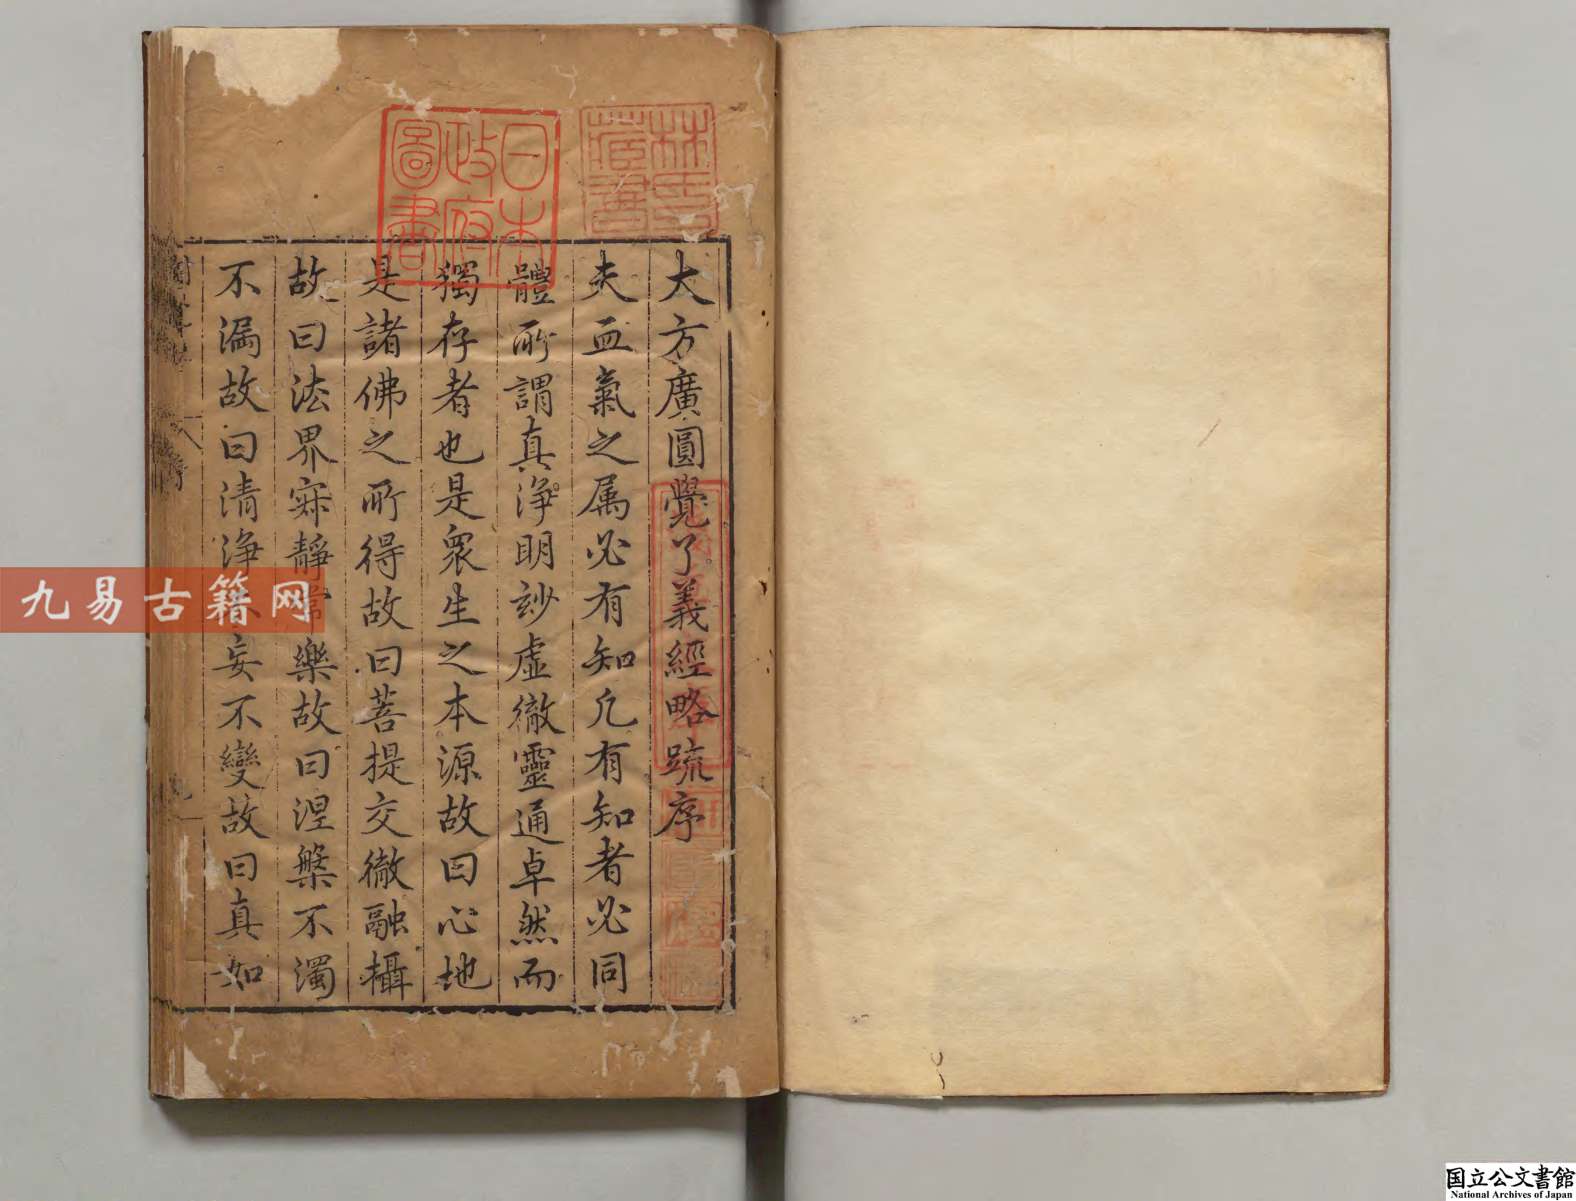 大方廣圓覺了義經略疏序
夫血氣之属必有知凡有知者必同
體所謂真浄明玅虛徹靈通卓然而
獨存者也是衆生之本源故曰心地
是諸佛之所得故曰菩提交徹融攝
故曰法界寂靜常樂故曰涅槃不濁
不漏故曰清浄不妄不變故曰真如
日本
政府
圖書
林氏
藏書
九易古籍网
国立公文書館
National Archives of Japan